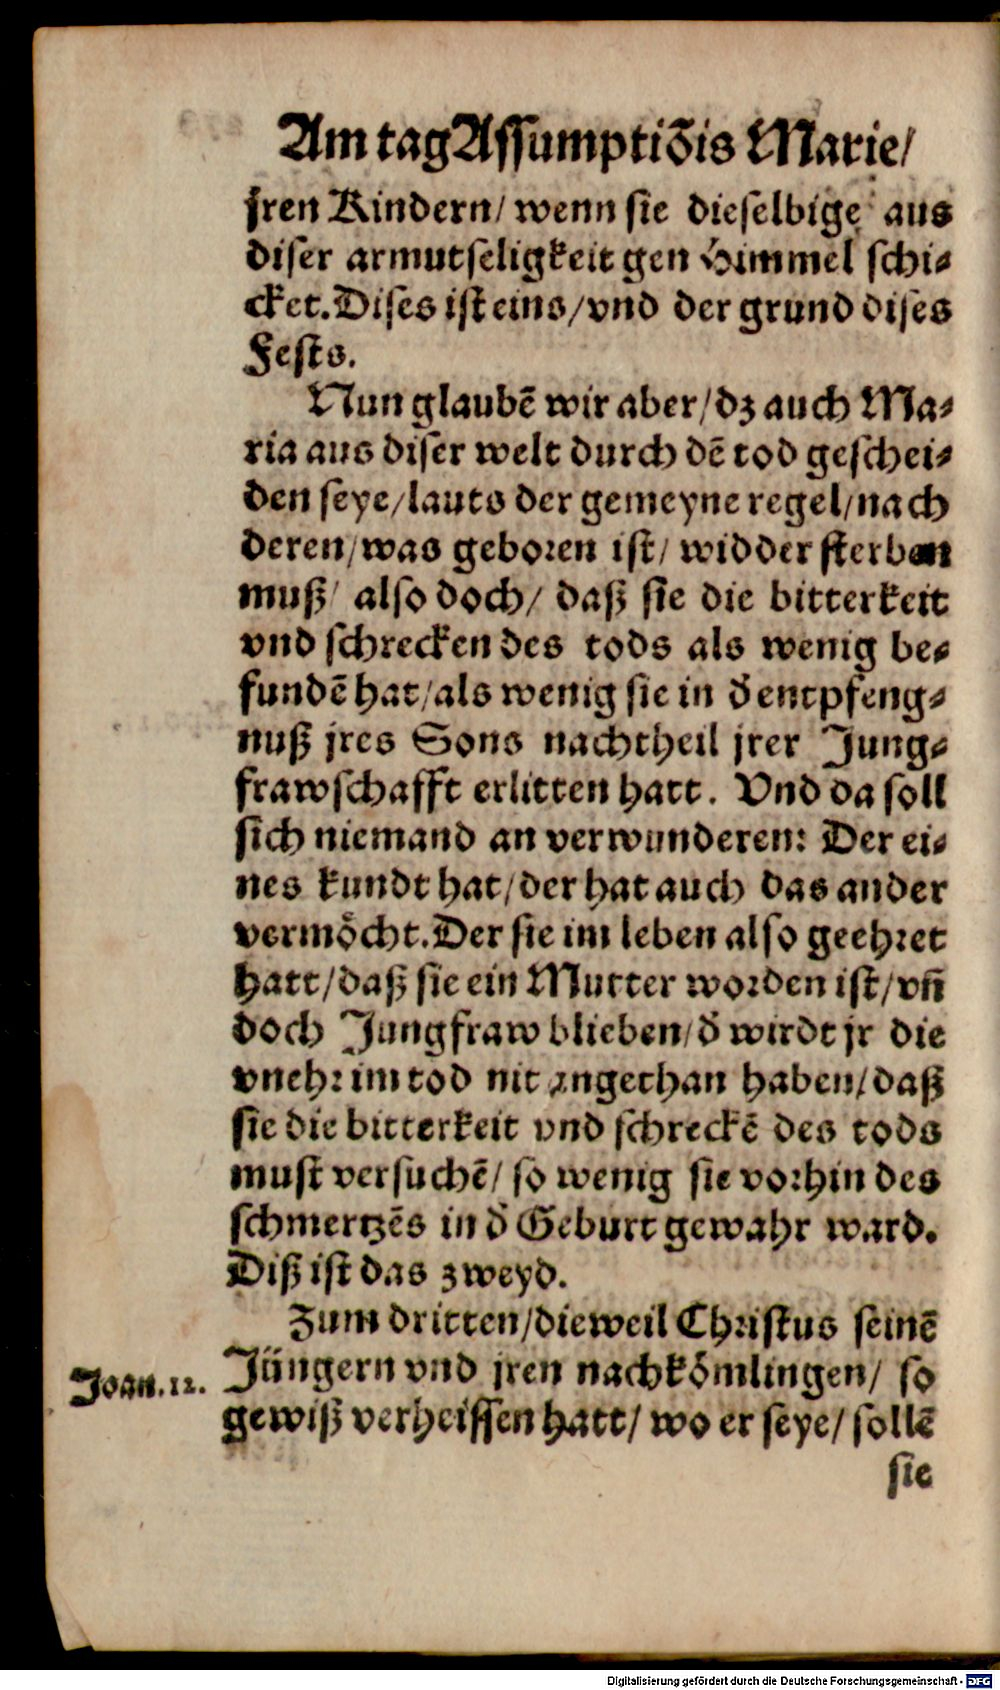 Am tag Assumptiõis Marie/
jren Kindern/ wenn sie dieselbige aus
diser armutseligkeit gen Himmel schi⸗
cket. Dises ist eins/ vnd der grund dises
Fests.
Nun glaubẽ wir aber/ dz auch Ma⸗
ria aus diser welt durch dẽ tod geschei⸗
den seye/ lauts der gemeyne regel/ nach
deren/ was geboren ist/ widder sterben
muß/ also doch/ daß sie die bitterkeit
vnd schrecken des tods als wenig be⸗
fundẽ hat/ als wenig sie in d̃ entpfeng⸗
nuß jres Sons nachtheil jrer Jung⸗
frawschafft erlitten hatt. Vnd da soll
sich niemand an verwunderen: Der ei⸗
nes kundt hat/ der hat auch das ander
vermöcht. Der sie im leben also geehret
hatt/ daß sie ein Mutter worden ist/ vñ
doch Jungfraw blieben/ d̃ wirdt jr die
vnehr im tod nit angethan haben/ daß
sie die bitterkeit vnd schreckẽ des tods
must versuchẽ/ so wenig sie vorhin des
schmertzẽs in d̃ Geburt gewahr ward.
Diß ist das zweyd.
Zum dritten/ dieweil Christus seinẽ
Jüngern vnd jren nachkömlingen/ so
Joan. 12.
gewiß verheissen hatt/ wo er seye/ sollẽ
sie
Digitalisierung gefördert durch die Deutsche Forschungsgemeinschaft - DFG